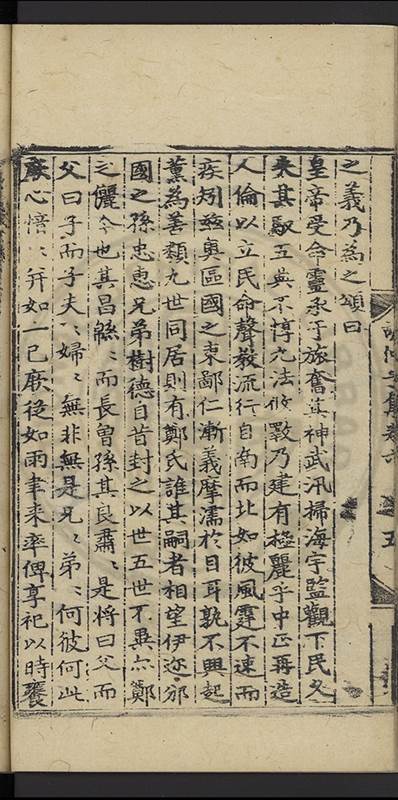 之義乃為之頌曰
皇帝受命靈承于旅奮其神武汛掃海宇監觀下民久
來其馭五典不惇九法攸斁乃建有極麗乎中正再造
人倫以立民命聲教流行自南而北如彼風霆不速而
疾矧茲奧區國之東鄙仁漸義摩濡於目耳孰不興起
薰為善類九世同居則有鄭氏誰其嗣者相望伊迩邠
國之孫忠惠兄弟樹德自昔封之以世五世不異亦鄭
之儷今也其昌緜〻而長曽孫其良肅〻是將曰父而
父曰子而子夫〻婦〻無非無是兄〻弟〻何彼何此
厥心愔〻并如一已厥從如雨聿来率俾享祀以時饔
五